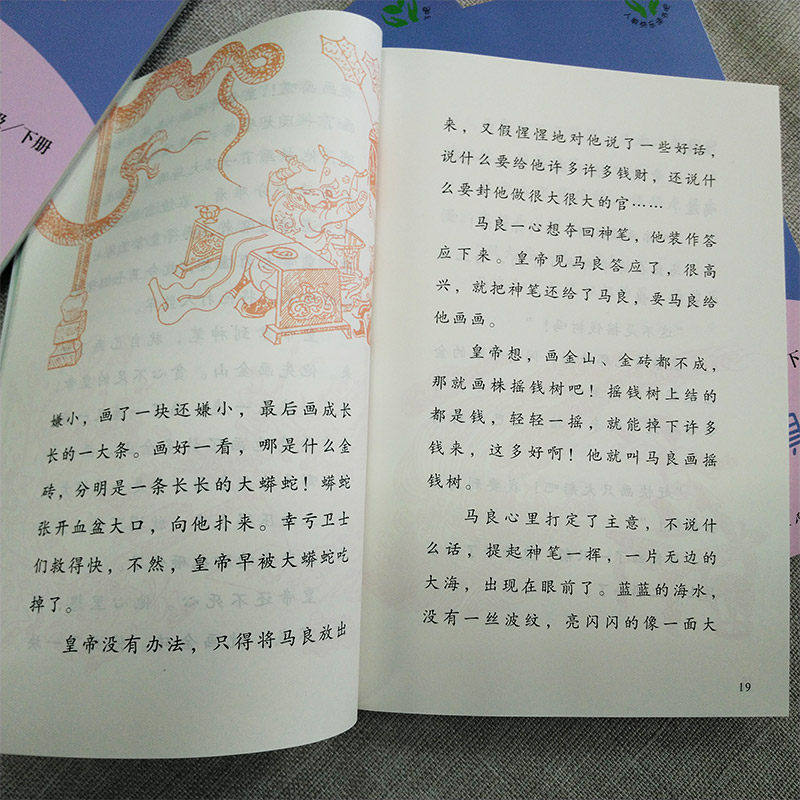 下册
嫌小，画了一块还嫌小，最后画成长
长的一大条。画好一看，哪是什么金
砖，分明是一条长长的大蟒蛇！蟒蛇
张开血盆大口，向他扑来。幸亏卫士
们救得快，不然，皇帝早被大蟒蛇吃
掉了。
皇帝没有办法，只得将马良放出
来，又假惺惺地对他说了一些好话，
说什么要给他许多许多钱财，还说什
么要封他做很大很大的官……
马良一心想夺回神笔，他装作答
应下来。皇帝见马良答应了，很高
兴，就把神笔还给了马良，要马良给
他画画。
皇帝想，画金山、金砖都不成，
那就画株摇钱树吧！摇钱树上结的
都是钱，轻轻一摇，就能掉下许多
钱来，这多好啊！他就叫马良画摇
钱树。
马良心里打定了主意，不说什
么话，提起神笔一挥，一片无边的
大海，出现在眼前了。蓝蓝的海水，
没有一丝波纹，亮闪闪的像一面大
19